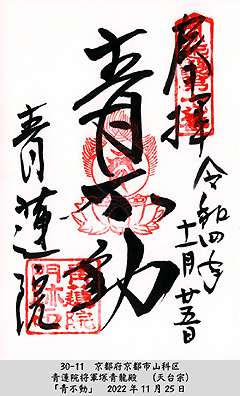 奉拝
令和四年
十一月廿五日
青不動
青蓮院
30-11　京都府京都市山科区
青蓮院将軍塚青龍殿　（天台宗）
「青不動」　2022年11月25日